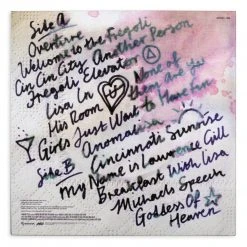 Side A
Overture
Welcome to the Fregoli
Cin Cin City Another Person
Fregoli Elevator
Lisa In None of
His Room them are You
Girls Just Want to Have Fun
Anomalisa
Side B Cincinnati Sunrise
My Name is Lawrence Gill
Breakfast With Lisa
Michael's Speech
Goddess Of
Heaven